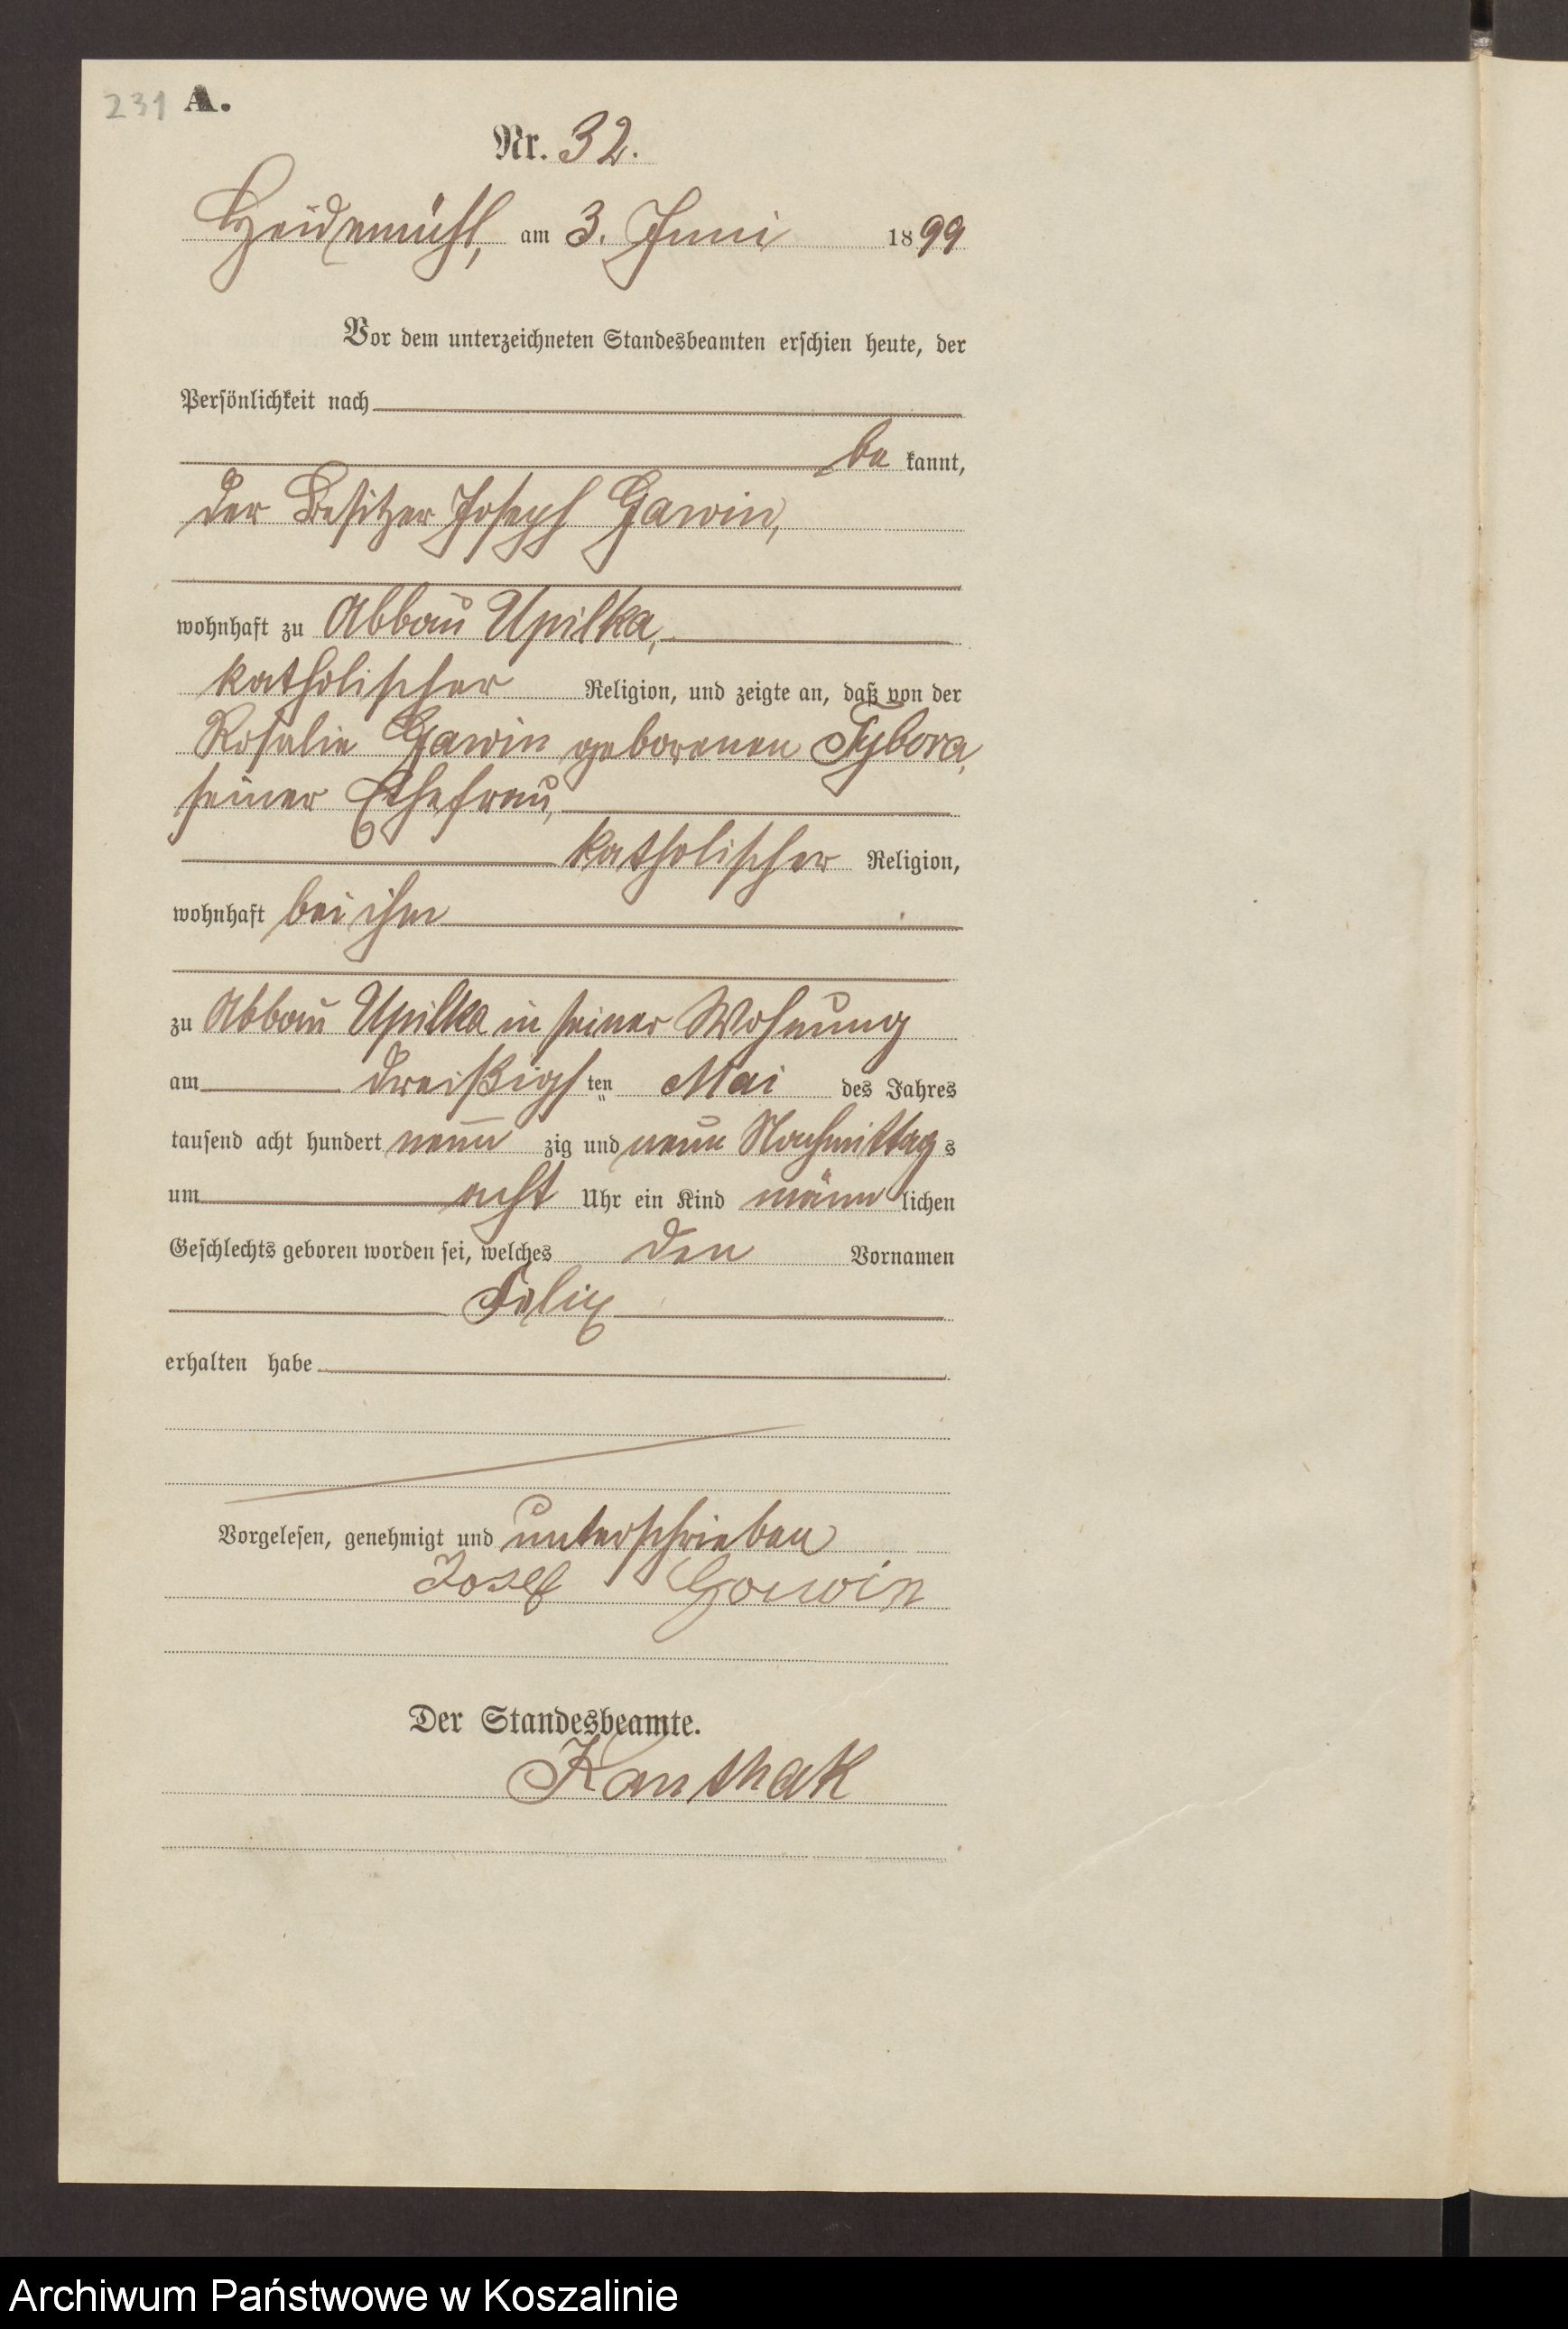 231 A.
Nr. 32.
Heidemühl, am 3. Juni 1899
Vor dem unterzeichneten Standesbeamten erschien heute, der
Persönlichkeit nach
be kannt,
der Besitzer Joseph Gawin,
wohnhaft zu Abbau Upilka,
katholischer Religion, und zeigte an, daß von der
Rosalie Gawin geborenen Tybora,
seiner Ehefrau,
katholischer Religion,
wohnhaft bei ihm
zu Abbau Upilka in seiner Wohnung
am dreißigsten Mai des Jahres
tausend acht hundert neun zig und neun Nachmittags
um acht Uhr ein Kind männlichen
Geschlechts geboren worden sei, welches den Vornamen
Felix
erhalten habe
Vorgelesen, genehmigt und unterschrieben
Josef Gawin
Der Standesbeamte.
Kanthak
Archiwum Państwowe w Koszalinie